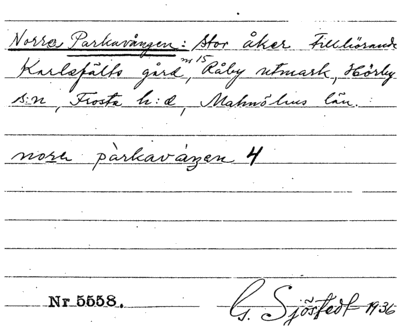 Norra Parkavången: stor åker tillhörande
Karlsfälts gård, nr 15 Råby utmark, Hörby
s:n, Frosta h:d, Malmöhus län.
nora párkaváŋen 4
Nr 5558.
G. Sjöstedt 1936